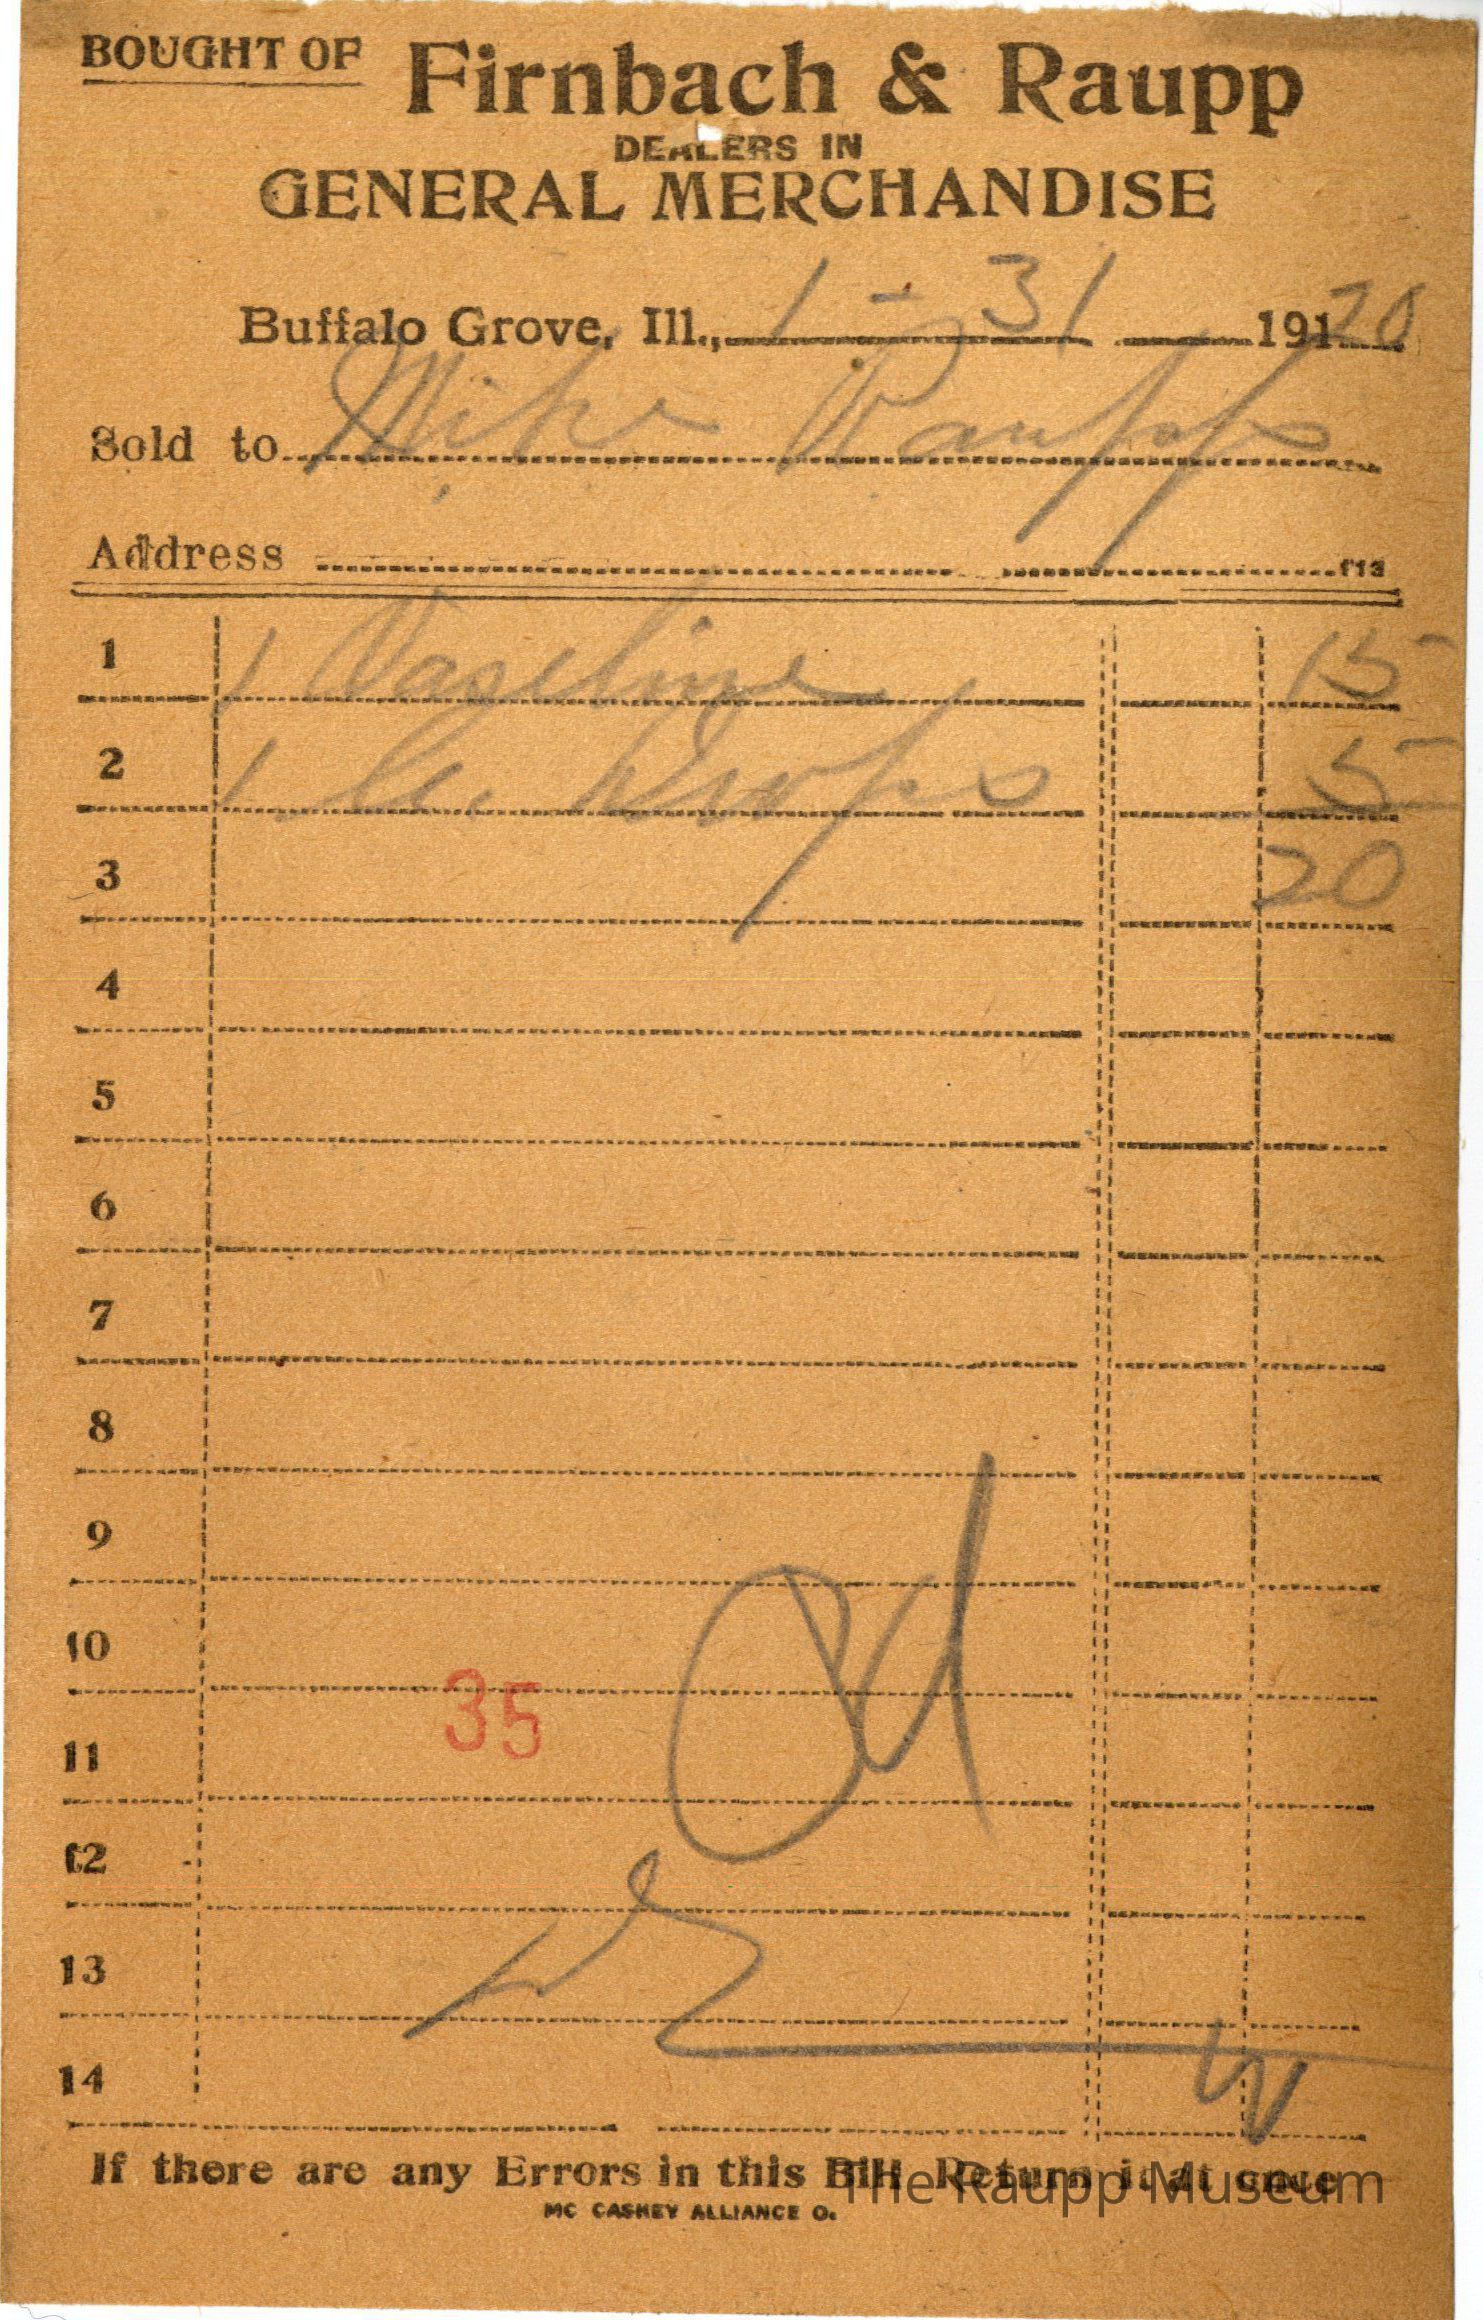 BOUGHT OF Firnbach & Raupp
DEALERS IN
GENERAL MERCHANDISE
Buffalo Grove, Ill., 1 - 31 191 20
Sold to Mike Raupp
Address F13
1 1 Vaseline 15
2 1 Drops 5
3 20
4
5
6
7
8
9
10
35
11
12
13
14
If there are any Errors in this Bill Return it at once
The Raupp Museum
MC CASKEY ALLIANCE O.